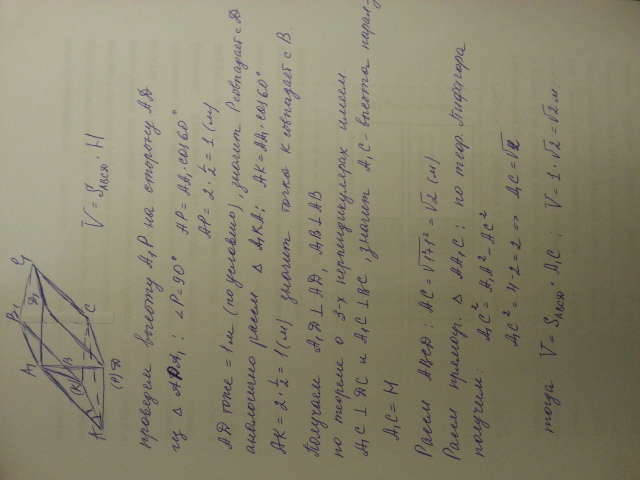 A₁ B₁ C₁ D₁ A B C (K) (P) D
V = S_ABCD · H
проведем высоту A₁P на сторону AD
из △ APA₁: ∠P=90° AP = AA₁·cos60°
AP = 2·½ = 1 (м)
AD тоже = 1м (по условию), значит P совпадает с D
аналогично рассм △ A₁KA: AK = AA₁ cos60°
AK = 2·½ = 1(м) значит точка K совпадает с B.
Получаем A₁D⊥AD, A₁B⊥AB
по теореме о 3-х перпендикулярах имеем
A₁C⊥DC и A₁C⊥BC, значит A₁C - высота
A₁C = H
Рассм ABCD: AC = √1+1² = √2 (м)
Рассм прямоуг. △ AA₁C: по теор. Пифагора
получим: A₁C² = A₁A² - AC²
A₁C² = 4-2 = 2 => A₁C = √2
тогда V = S_ABCD · A₁C; V = 1·√2 = √2 м